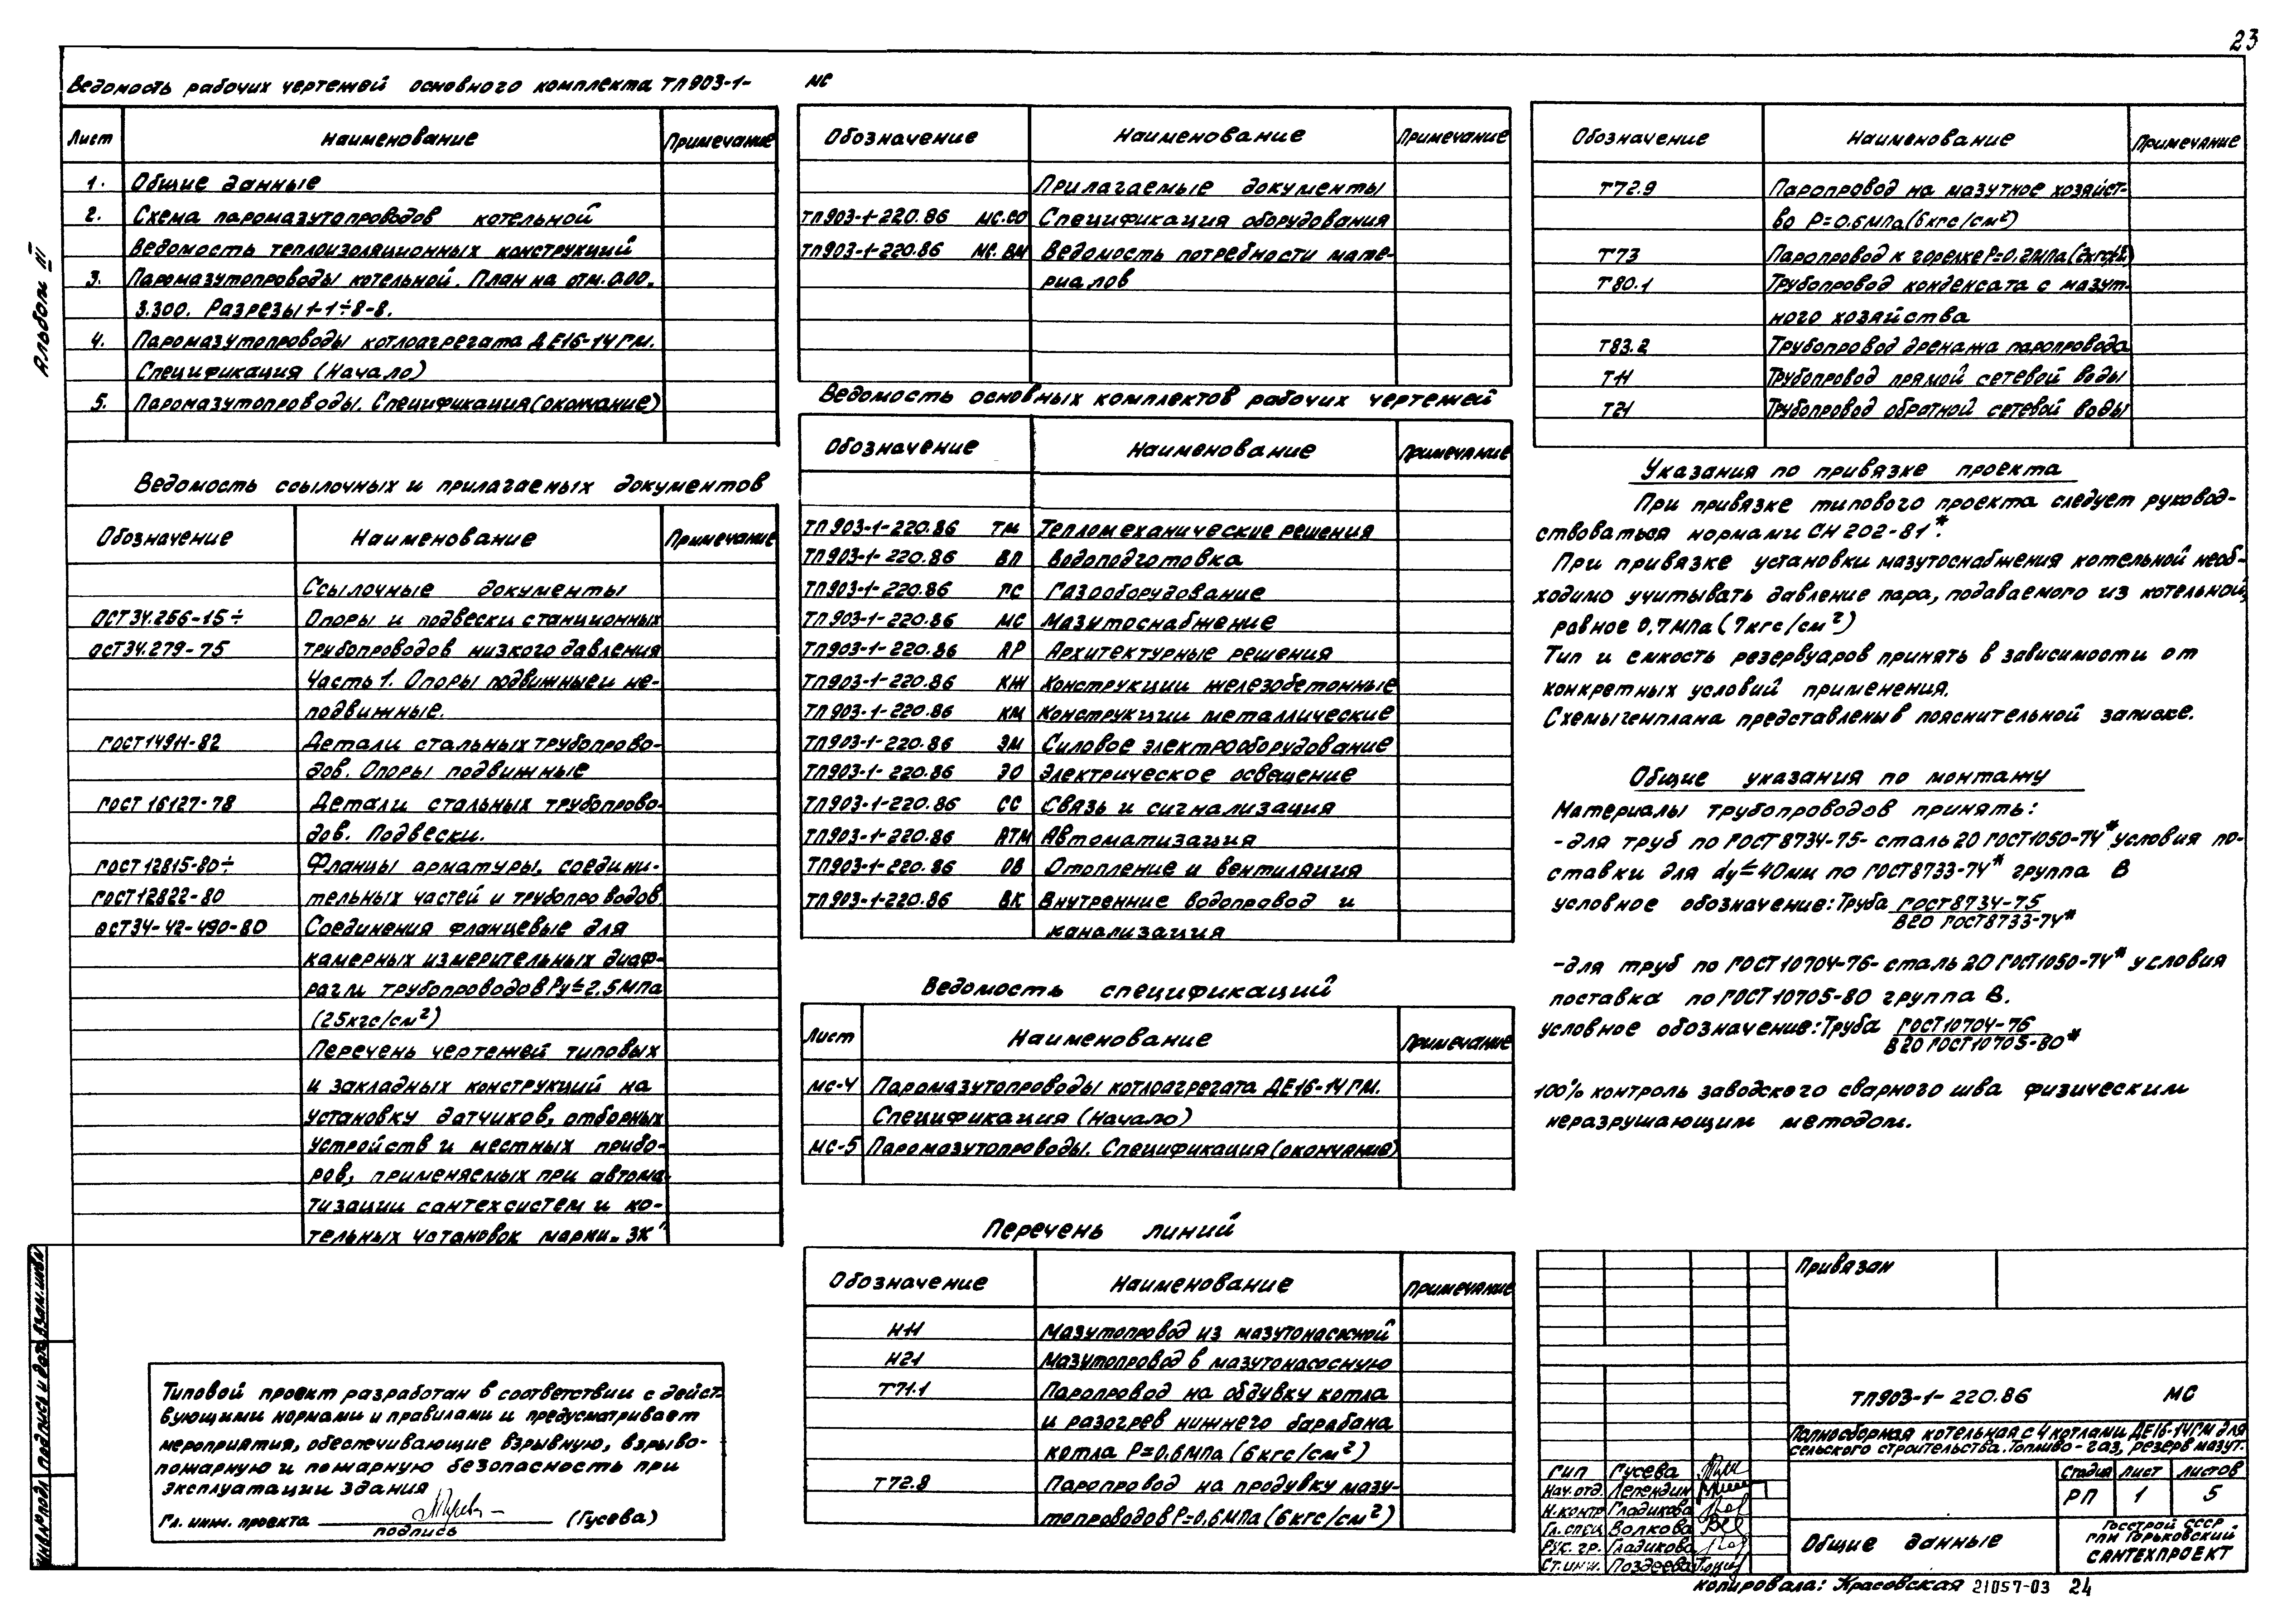 23
Альбом III
Ведомость рабочих чертежей основного комплекта ТП903-1- МС
Лист Наименование Примечание
1. Общие данные
2. Схема паромазутопроводов котельной
Ведомость теплоизоляционных конструкций
3. Паромазутопроводы котельной. План на отм. 0.00.
3.300. Разрезы 1-1÷8-8.
4. Паромазутопроводы котлоагрегата ДЕ16-14ГМ.
Спецификация (Начало)
5. Паромазутопроводы. Спецификация (окончание)
Ведомость ссылочных и прилагаемых документов
Обозначение Наименование Примечание
Ссылочные документы
ОСТ34.256-15÷ Опоры и подвески станционных
ОСТ34.279-75 трубопроводов низкого давления
Часть 1. Опоры подвижные и не-
подвижные.
ГОСТ14911-82 Детали стальных трубопрово-
дов. Опоры подвижные
ГОСТ 16127-78 Детали стальных трубопрово-
дов. Подвески.
ГОСТ12815-80÷ Фланцы арматуры, соедини-
ГОСТ12822-80 тельных частей и трубопроводов.
ОСТ34-42-490-80 Соединения фланцевые для
камерных измерительных диаф-
рагм трубопроводов Ру≤2.5МПа
(25кгс/см²)
Перечень чертежей типовых
и закладных конструкций на
установку датчиков, отборных
устройств и местных прибо-
ров, применяемых при автома-
тизации сантехсистем и ко-
тельных установок марки „ЗК"
Типовой проект разработан в соответствии с дейст-
вующими нормами и правилами и предусматривает
мероприятия, обеспечивающие взрывную, взрыво-
пожарную и пожарную безопасность при
эксплуатации здания
Гл. инж. проекта (Гусева)
подпись
Обозначение Наименование Примечание
Прилагаемые документы
ТП903-1-220.86 МС.СО Спецификация оборудования
ТП903-1-220.86 МС.ВМ Ведомость потребности мате-
риалов
Ведомость основных комплектов рабочих чертежей
Обозначение Наименование Примечание
ТП903-1-220.86 ТМ Тепломеханические решения
ТП903-1-220.86 ВП Водоподготовка
ТП903-1-220.86 ГС Газооборудование
ТП903-1-220.86 МС Мазутоснабжение
ТП903-1-220.86 АР Архитектурные решения
ТП903-1-220.86 КЖ Конструкции железобетонные
ТП903-1-220.86 КМ Конструкции металлические
ТП903-1-220.86 ЭМ Силовое электрооборудование
ТП903-1-220.86 ЭО Электрическое освещение
ТП903-1-220.86 СС Связь и сигнализация
ТП903-1-220.86 АТМ Автоматизация
ТП903-1-220.86 ОВ Отопление и вентиляция
ТП903-1-220.86 ВК Внутренние водопровод и
канализация
Ведомость спецификаций
Лист Наименование Примечание
МС-4 Паромазутопроводы котлоагрегата ДЕ16-14ГМ.
Спецификация (Начало)
МС-5 Паромазутопроводы. Спецификация (окончание)
Перечень линий
Обозначение Наименование Примечание
Н11 Мазутопровод из мазутонасосной
Н21 Мазутопровод в мазутонасосную
Т71.1 Паропровод на обдувку котла
и разогрев нижнего барабана
котла Р=0.6МПа (6кгс/см²)
Т72.8 Паропровод на продувку мазу-
топроводов Р=0.6МПа (6кгс/см²)
Обозначение Наименование Примечание
Т72.9 Паропровод на мазутное хозяйст-
во Р=0.6МПа (6кгс/см²)
Т73 Паропровод к горелке Р=0.2МПа (2кгс/см²)
Т80.1 Трубопровод конденсата с мазут-
ного хозяйства
Т83.2 Трубопровод дренажа паропровода
Т11 Трубопровод прямой сетевой воды
Т21 Трубопровод обратной сетевой воды
Указания по привязке проекта
При привязке типового проекта следует руковод-
ствоваться нормами СН 202-81*.
При привязке установки мазутоснабжения котельной необ-
ходимо учитывать давление пара, подаваемого из котельной,
равное 0,7МПа (7кгс/см²)
Тип и емкость резервуаров принять в зависимости от
конкретных условий применения.
Схемы генплана представлены в пояснительной записке.
Общие указания по монтажу
Материалы трубопроводов принять:
-для труб по ГОСТ8734-75- сталь 20 ГОСТ1050-74* условия по-
ставки для dу≤40мм по ГОСТ8733-74* группа В
условное обозначение: Труба ГОСТ8734-75
В20 ГОСТ8733-74*
-для труб по ГОСТ10704-76- сталь 20 ГОСТ1050-74* условия
поставка по ГОСТ10705-80 группа В.
условное обозначение: Труба ГОСТ10704-76
В20 ГОСТ10705-80*
100% контроль заводского сварного шва физическим
неразрушающим методом.
Привязан
ТП903-1-220.86 МС
Полносборная котельная с 4 котлами ДЕ16-14ГМ для
сельского строительства. Топливо-газ, резерв мазут.
ГИП Гусева
Нач.отд. Лепендин
Н.контр Гладикова
Гл.спец Волкова
Рук.гр. Гладикова
Ст.инж. Поздеева
Стадия Лист Листов
РП 1 5
Общие данные
Госстрой СССР
ГПИ Горьковский
САНТЕХПРОЕКТ
Инв.№подл Подпись и дата Взам.инв№
копировала: Красовская 21057-03 24